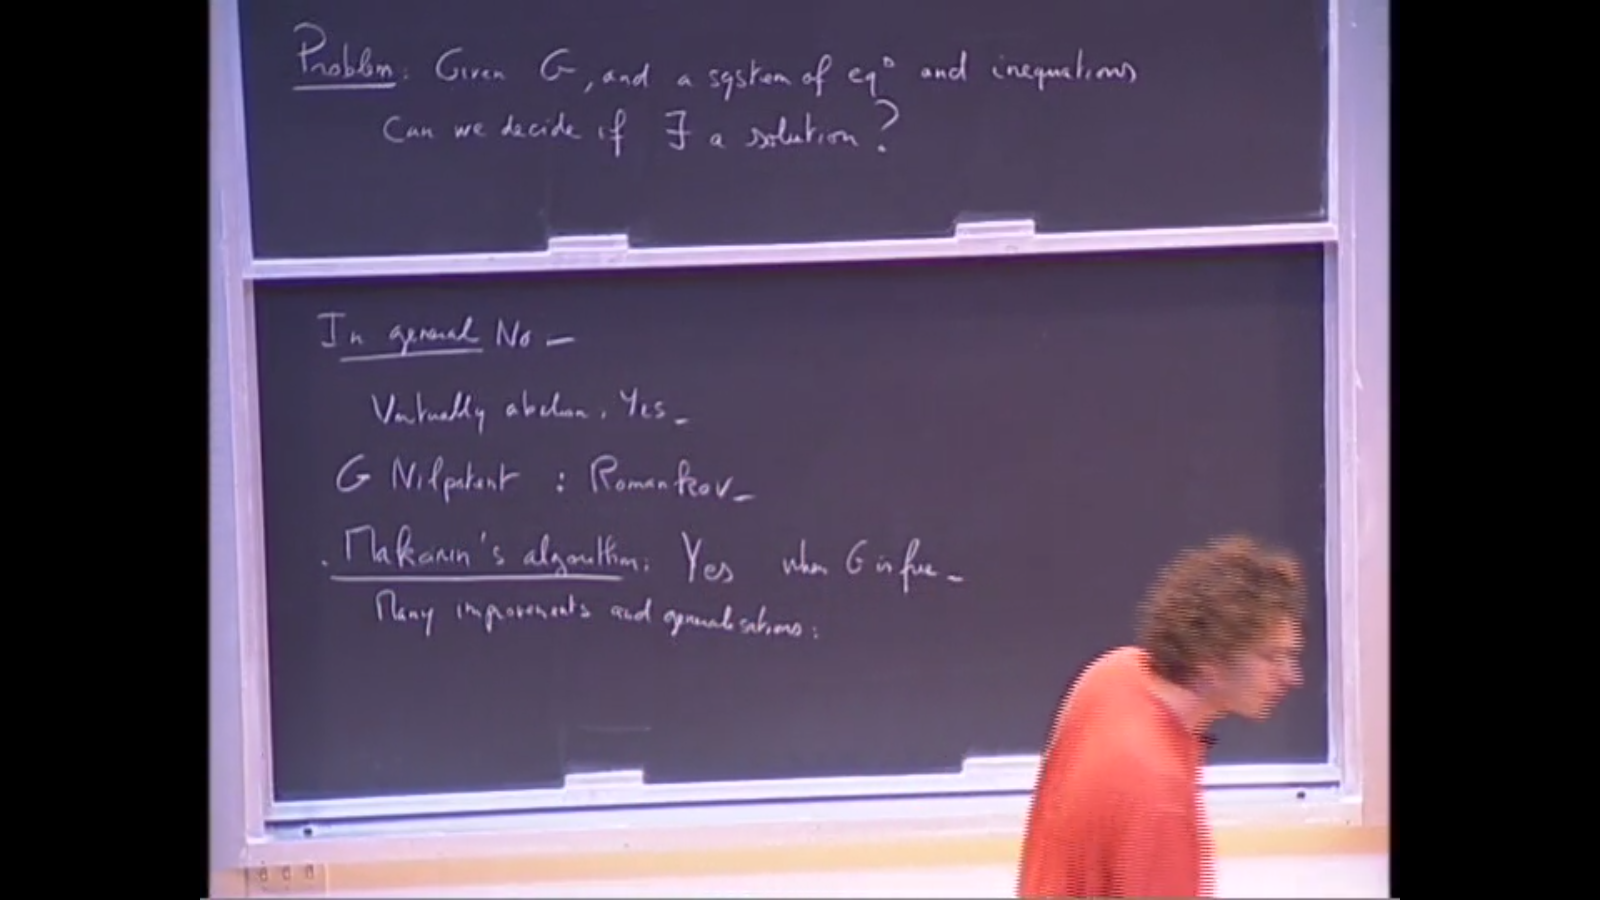 Problem: Given G, and a system of eq° and inequations
Can we decide if ∃ a solution?
In general No —
Virtually abelian. Yes —
G Nilpotent : Romankov —
. Makanin's algorithm: Yes when G is free —
Many improvements and generalisations: